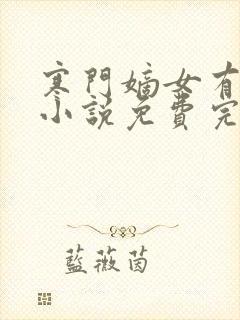 寒門嫡女有
小說免費完
藍薇茵